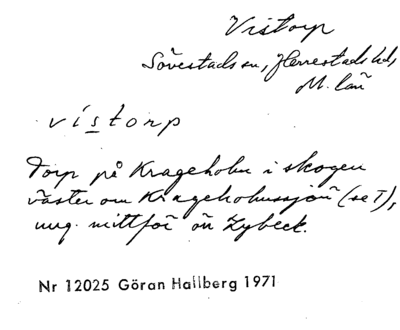 Vistorp
Sövestads sn, Herrestads hd,
M. län
vistorp
Torp på Krageholm i skogen
väster om Krageholmssjön (se T),
ung. mittför ön Lybeck.
Nr 12025 Göran Hallberg 1971